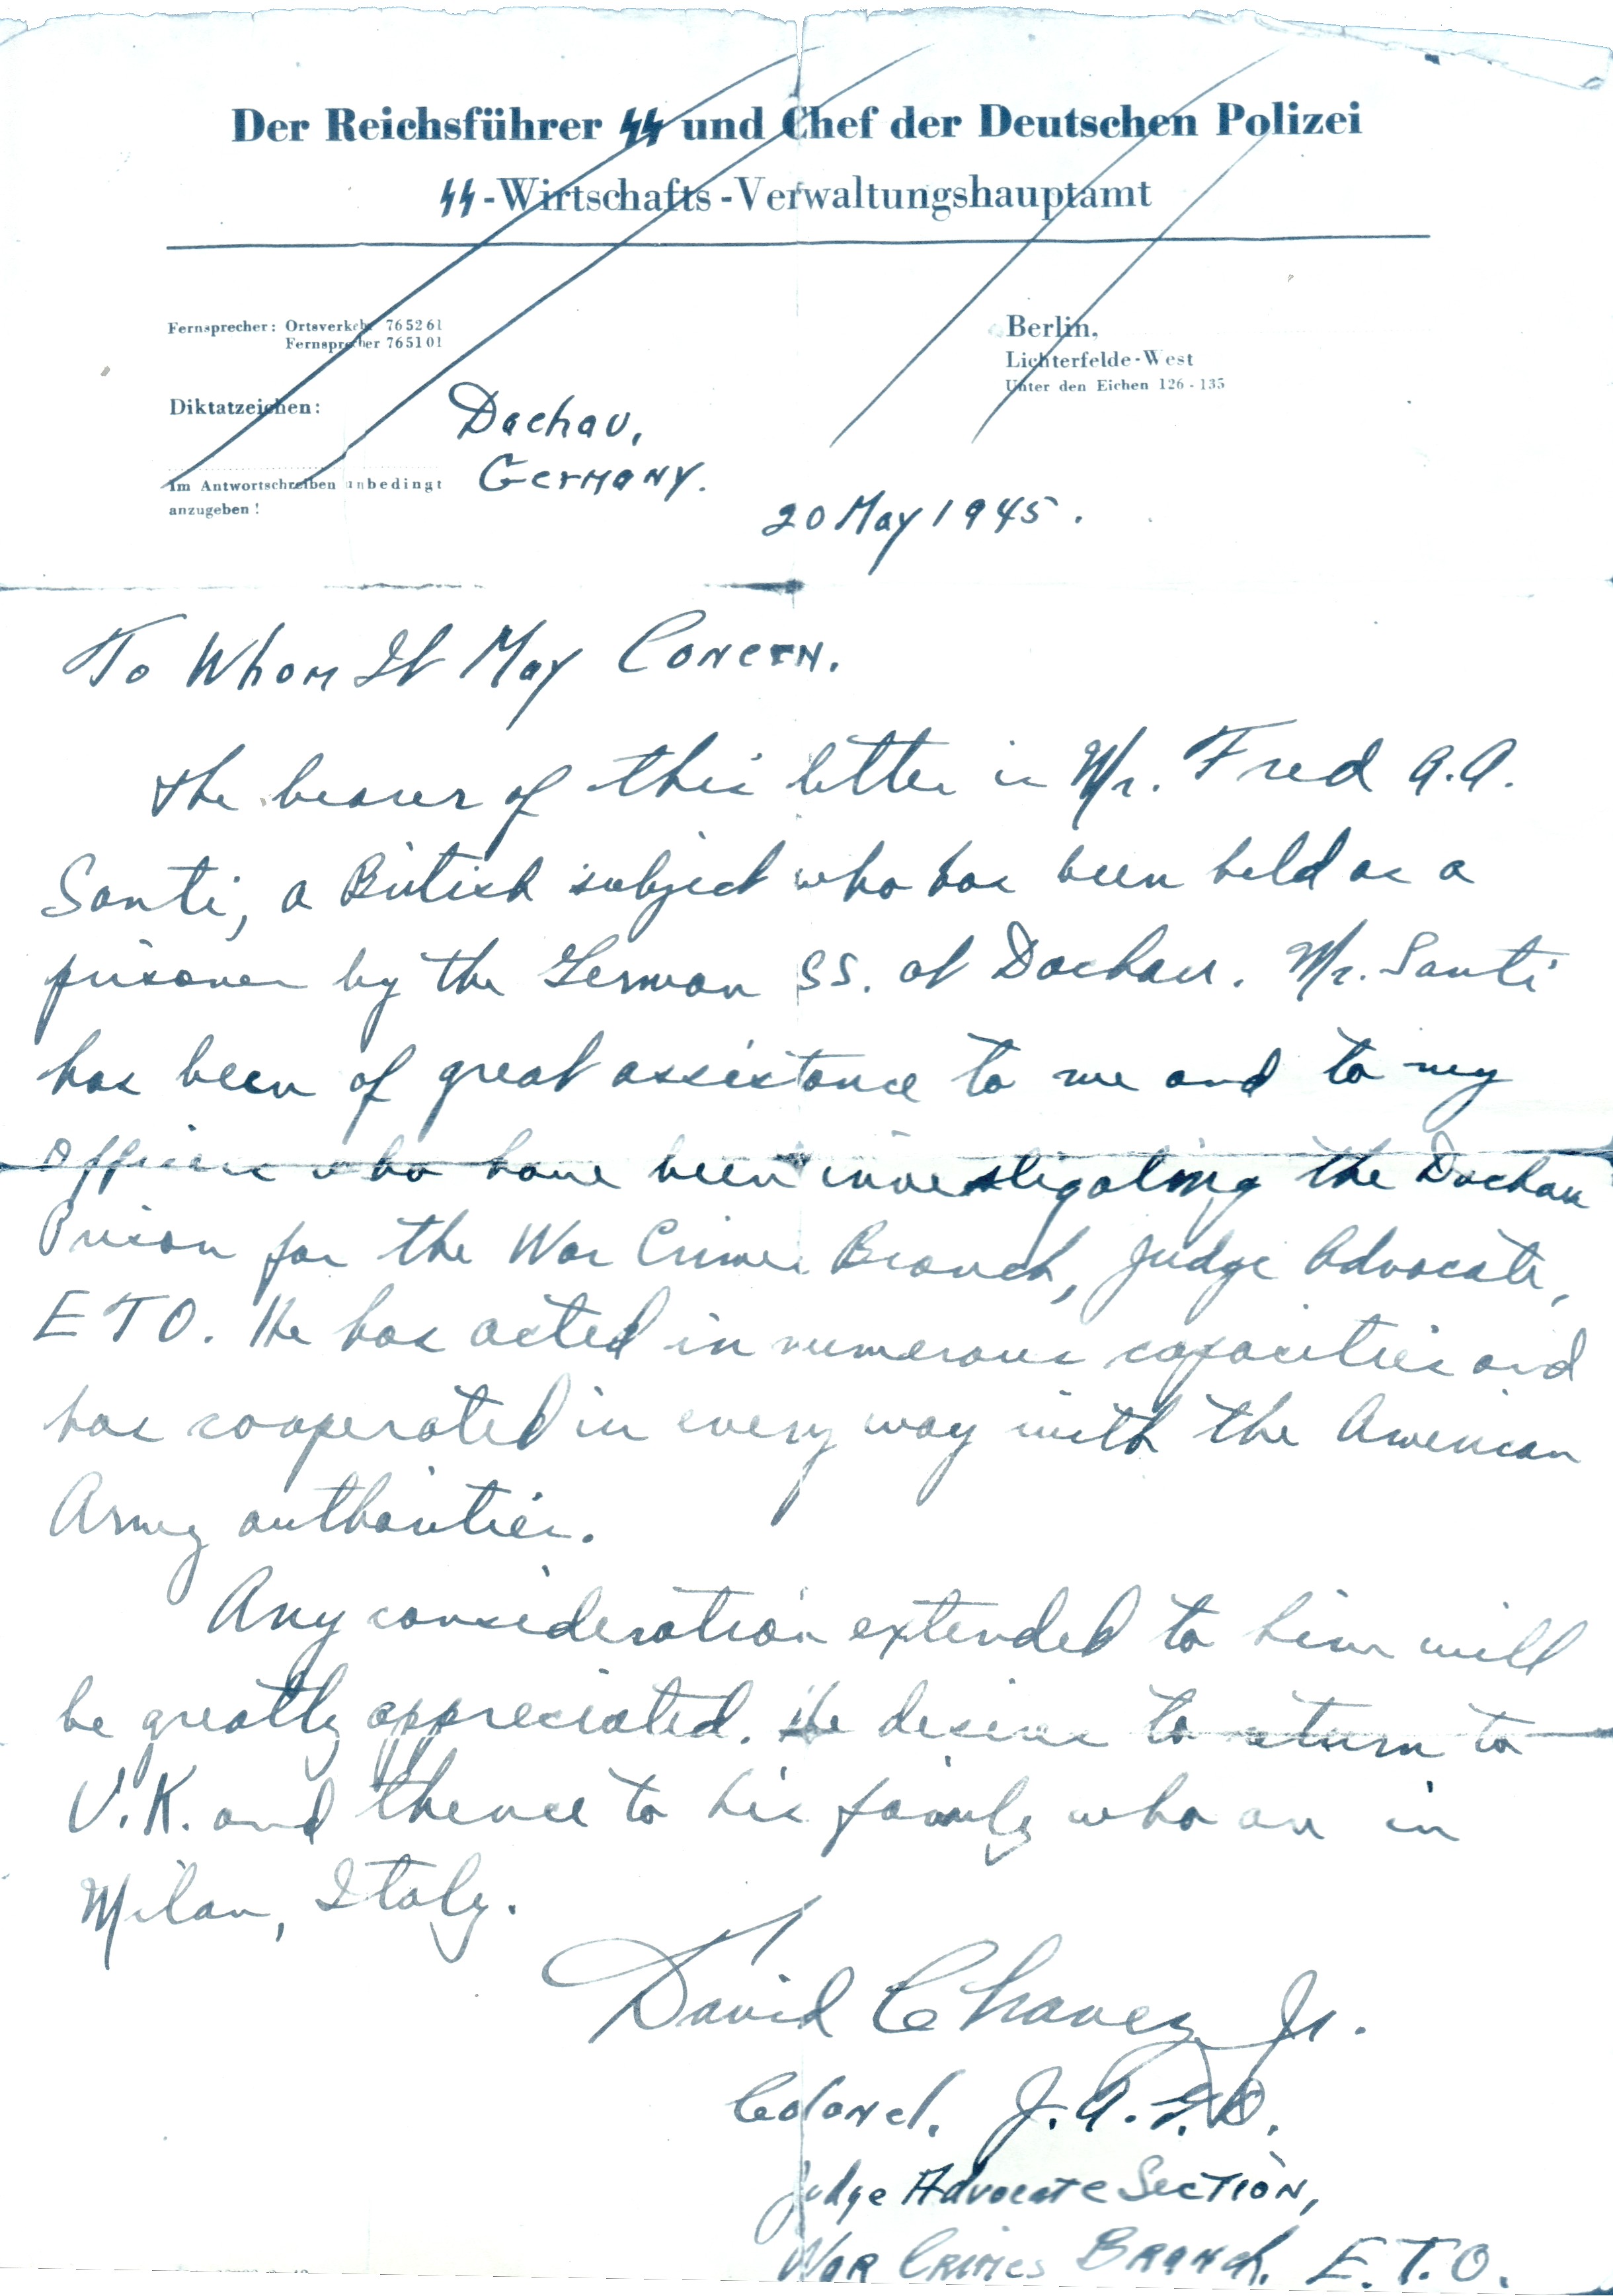 Der Reichsführer ᛋᛋ und Chef der Deutschen Polizei
ᛋᛋ-Wirtschafts-Verwaltungshauptamt
Fernsprecher: Ortsverkehr 765261
Fernsprecher 765101
Berlin,
Lichterfelde-West
Unter den Eichen 126-135
Diktatzeichen:
Im Antwortschreiben unbedingt
anzugeben!
Dachau,
Germany.
20 May 1945.
To Whom It May Concern.
The bearer of this letter is Mr. Fred A.A.
Santi, a British subject who has been held as a
prisoner by the German SS. at Dachau. Mr. Santi
has been of great assistance to me and to my
officers who have been investigating the Dachau
Prison for the War Crimes Branch, Judge Advocate,
ETO. He has acted in numerous capacities and
has cooperated in every way with the American
Army authorities.
Any consideration extended to him will
be greatly appreciated. He desires to return to
U.K. and thence to his family who are in
Milan, Italy.
David Chavez Jr.
Colonel. J.A.G.D.
Judge Advocate Section,
War Crimes Branch, E.T.O.